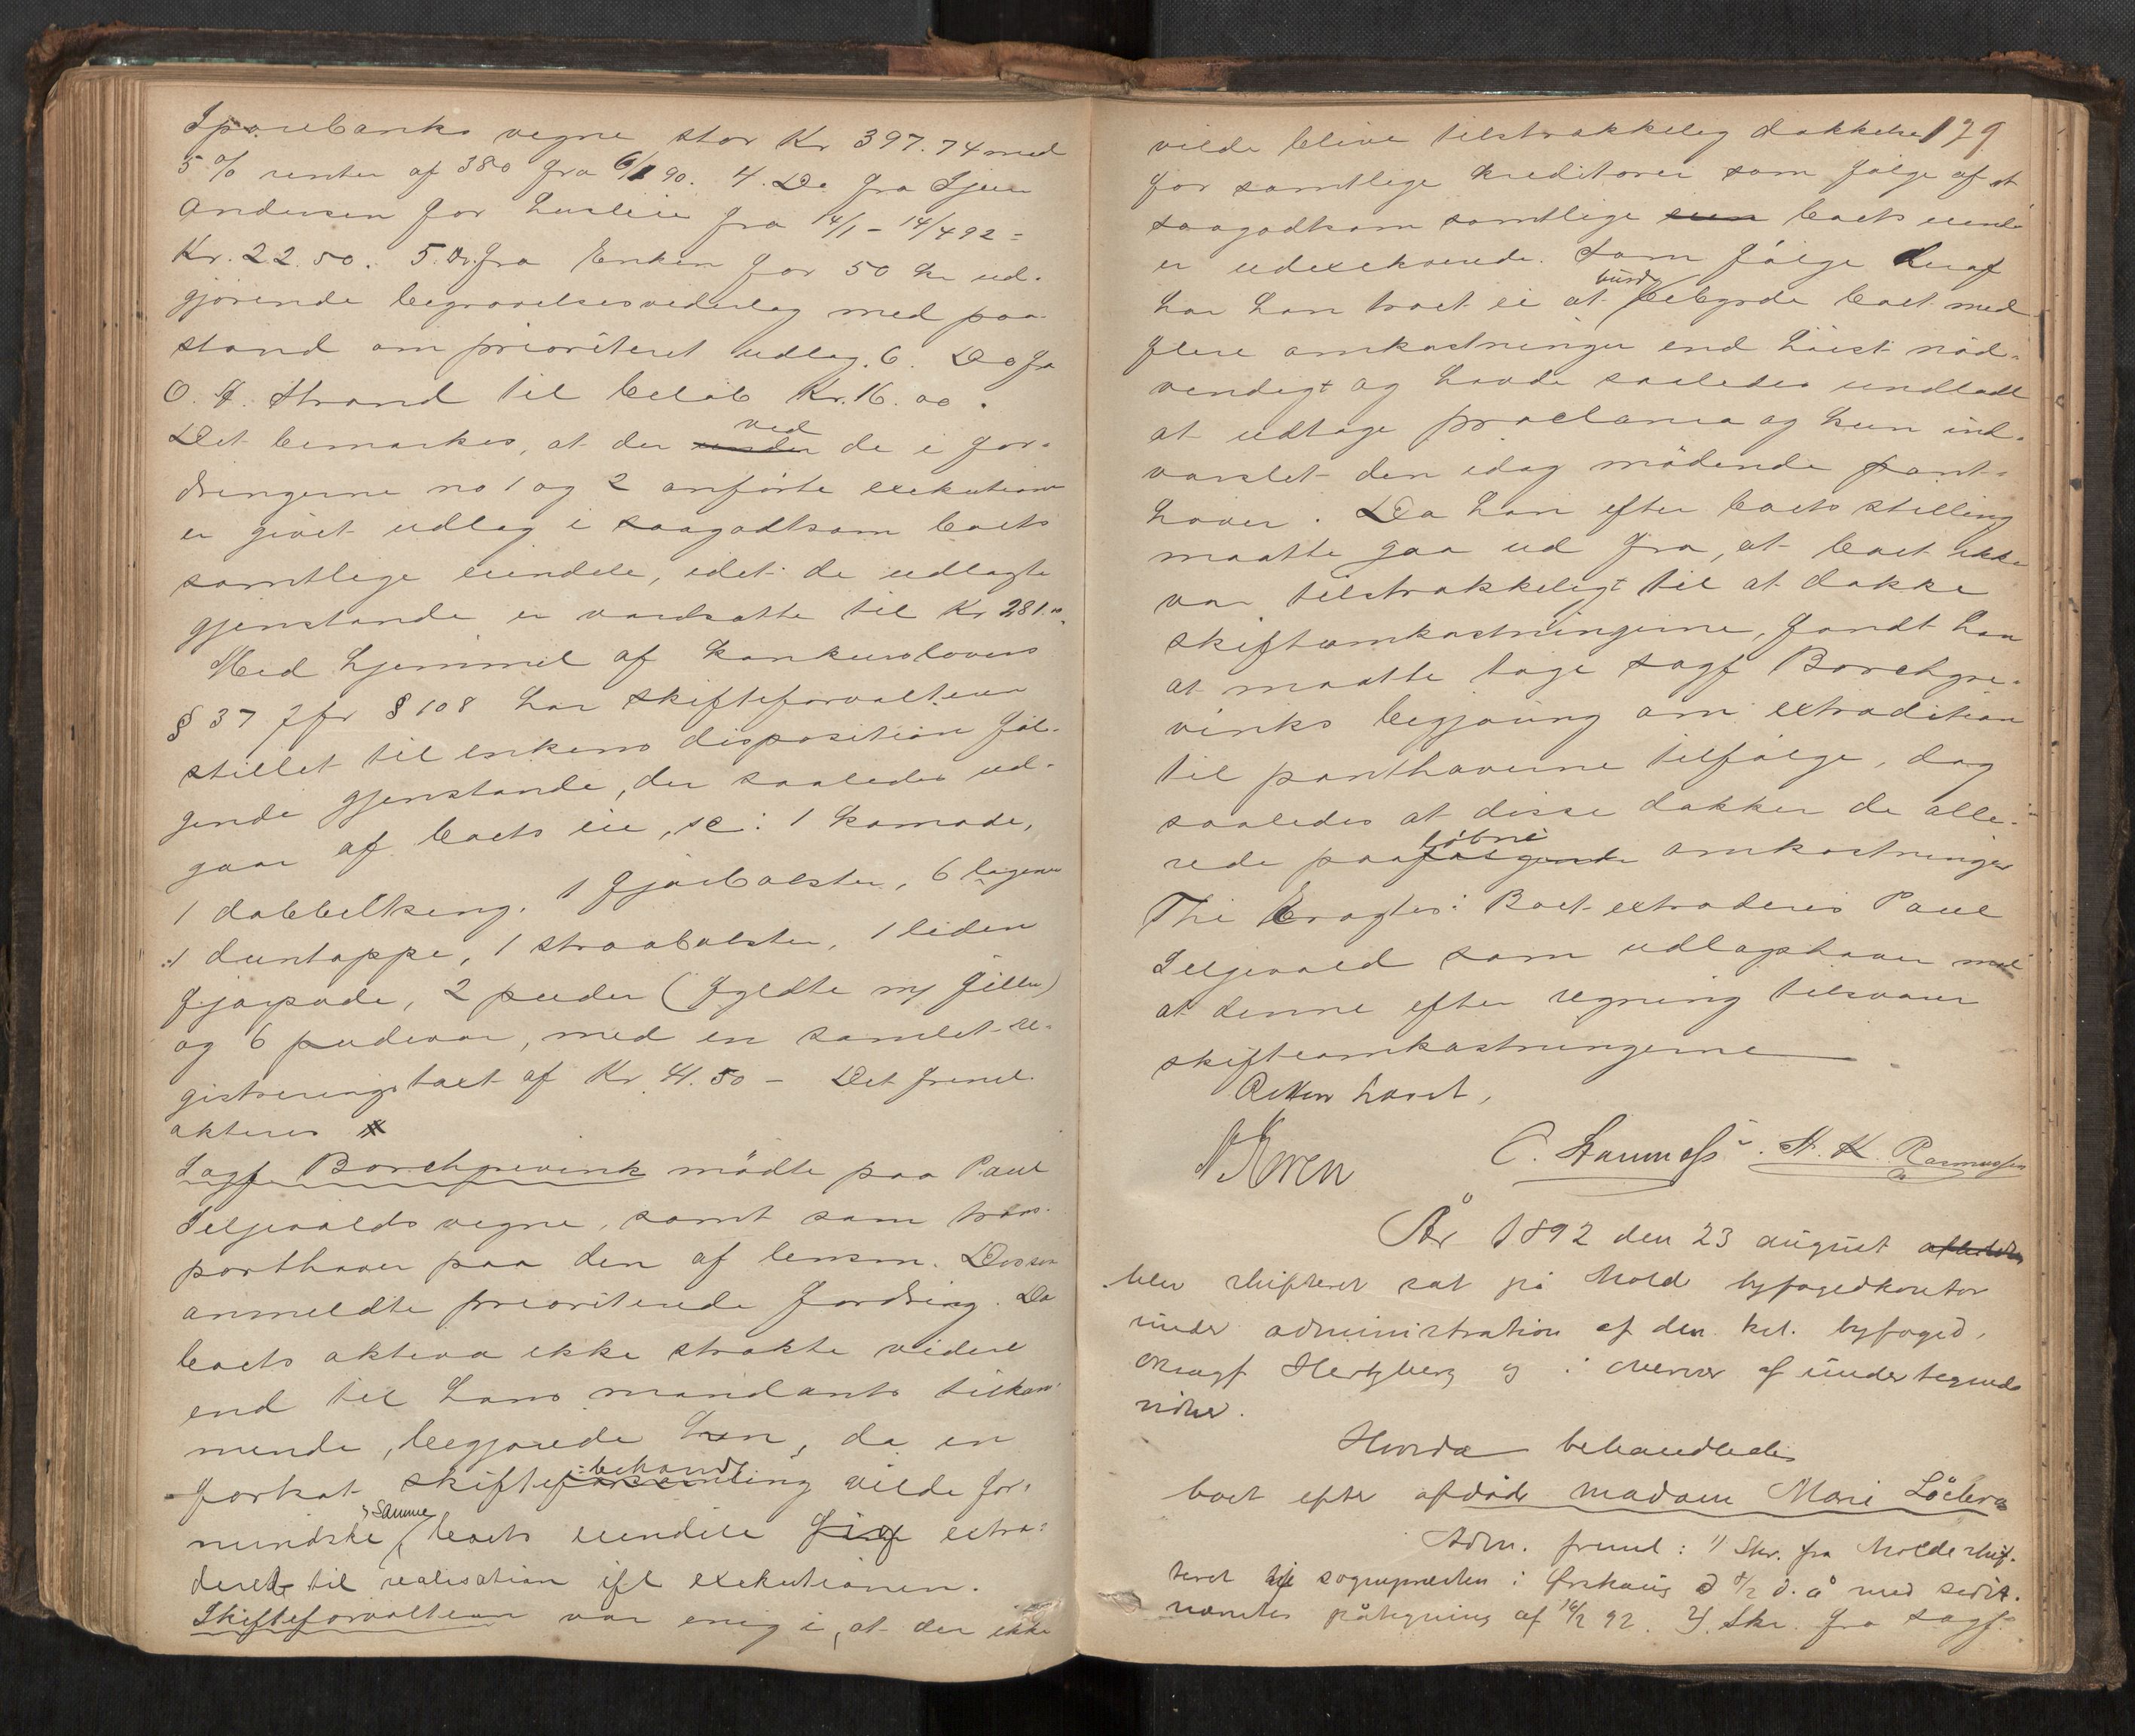 Sparebanks vegne stor Kr 397.74 med
5 % renter af 380 fra 6/1 90. 4. Do fra
Andersen for husleie fra 14/1 - 14/4 92 =
Kr. 22.50. 5. Do. fra Enken for 50 kr ud-
gjørende begravelsesvederlag med paa-
stand om prioriteret udlæg. 6. Do fra
O. Strand til beløb Kr. 16.00.
Det bemærkes, at der under ved de i for-
dringerne no 1 og 2 anførte exekutioner
er givet udlæg i saagodtsom boets
samtlige eiendele, idet de udlagte
gjenstande er værdsatte til Kr 281.00.
Med hjemmel af konkurslovens
§ 37 jfr § 108 har skifteforvalteren
stillet til enkens disposition føl-
gende gjenstande, der saaledes ud-
gaar af boets eie, sc: 1 komode,
1 dobbeltseng. 1 fjærbolster, 6 lagener
1 duntæppe, 1 straabolster, 1 liden
fjærpude, 2 puder (fyldte m/ filler)
og 6 pudevar, med en samlet re-
gistreringstaxt af Kr. 41.50 - Det freml.
akteres
Sagf Borchgrevink mødte paa Paul
Seljevolds vegne, samt som trans-
porthaver paa den af lensm.
anmeldte prioriterede fordring. Da
boets aktiva ikke strakte videre
end til hans mandants tilkom-
mende, begjærede han, da en
fortsat skifteforsamling behandl: vilde for-
mindske samme, boets eiendele extra-
deret til realisation ifl exekutionen.
Skifteforvalteren var enig i, at der ikke
179
vilde blive tilstrækkelig dækkelse
for samtlige kreditorer som følge af at
saagodtsom samtlige boets eiend.
er udexekverede. Som følge deraf
har han troet ei at burde bebyrde boet med
flere omkostninger end høist nød-
vendigt og havde saaledes undladt
at udtage proclama og kun ind-
varslet den idag mødende pant-
haver. Da han efter boets stilling
maatte gaa ud fra, at boet ikke
var tilstrækkeligt til at dække
skifteomkostningerne, fandt han
at maatte tage sagf Borchgre-
vinks begjæring om extradition
til panthaverne tilfølge, dog
saaledes at disse dækker de alle-
rede paafølgende løbne omkostninger
Thi Eragtes: Boet extraderes Paul
Seljevold som udlægshaver mod
at denne efter regning tilsvarer
skifteomkostningerne
Retten hævet,
C. St. K. Rasmussen
År 1892 den 23 august
blev skifteret sat på Molde byfogedkontor
under administration af den kst. byfoged,
Hertzberg og i overvær af undertegnede
vidner.
Hvorda behandledes
boet efter afdøde madam Mari
Adm. freml: 1) Skr. fra Molde skif-
teret til sognepresten i Ørskoug d 8/2 d. å med sidst-
nævntes påtegning af 16/2 92. 2) Skr. fra sagf.